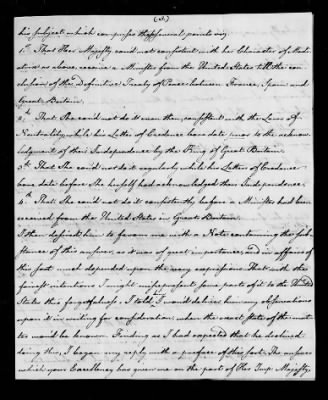 (3.)
his subject which comprises these several points viz
1.st That Her Majesty could not consistent with her Character of Mediatrix
as above, receive a Minister from the United States till the conclusion
of the Definitive Treaty of Peace between France, Spain and
Great Britain.
2.d That She could not do it even then, consistent with the Laws of
Neutrality, while his Letter of Credence bore date prior to the acknowledgment
of their Independence by the King of Great Britain.
3.d That She could not do it regularly while his Letter of Credence
bore date before She herself had acknowledged their Independence.
4.th That She could not do it consistently before a Minister had been
received from the United States in Great Britain.
I then desired him to favour me with a Note containing the substance
of this answer, as it was of great importance, and in affairs of
this sort much depended upon the very expressions. That with the
fairest intentions I might misrepresent some part of it to the United
States thro' forgetfulness. I told him I would deliver him my observations
upon it in writing for consideration when the exact State of the matter
would be known. Finding as I had expected that he declined
doing this, I began my reply with a preface of this sort. The answer
which your Excellency has given me on the part of Her Imp: Majesty